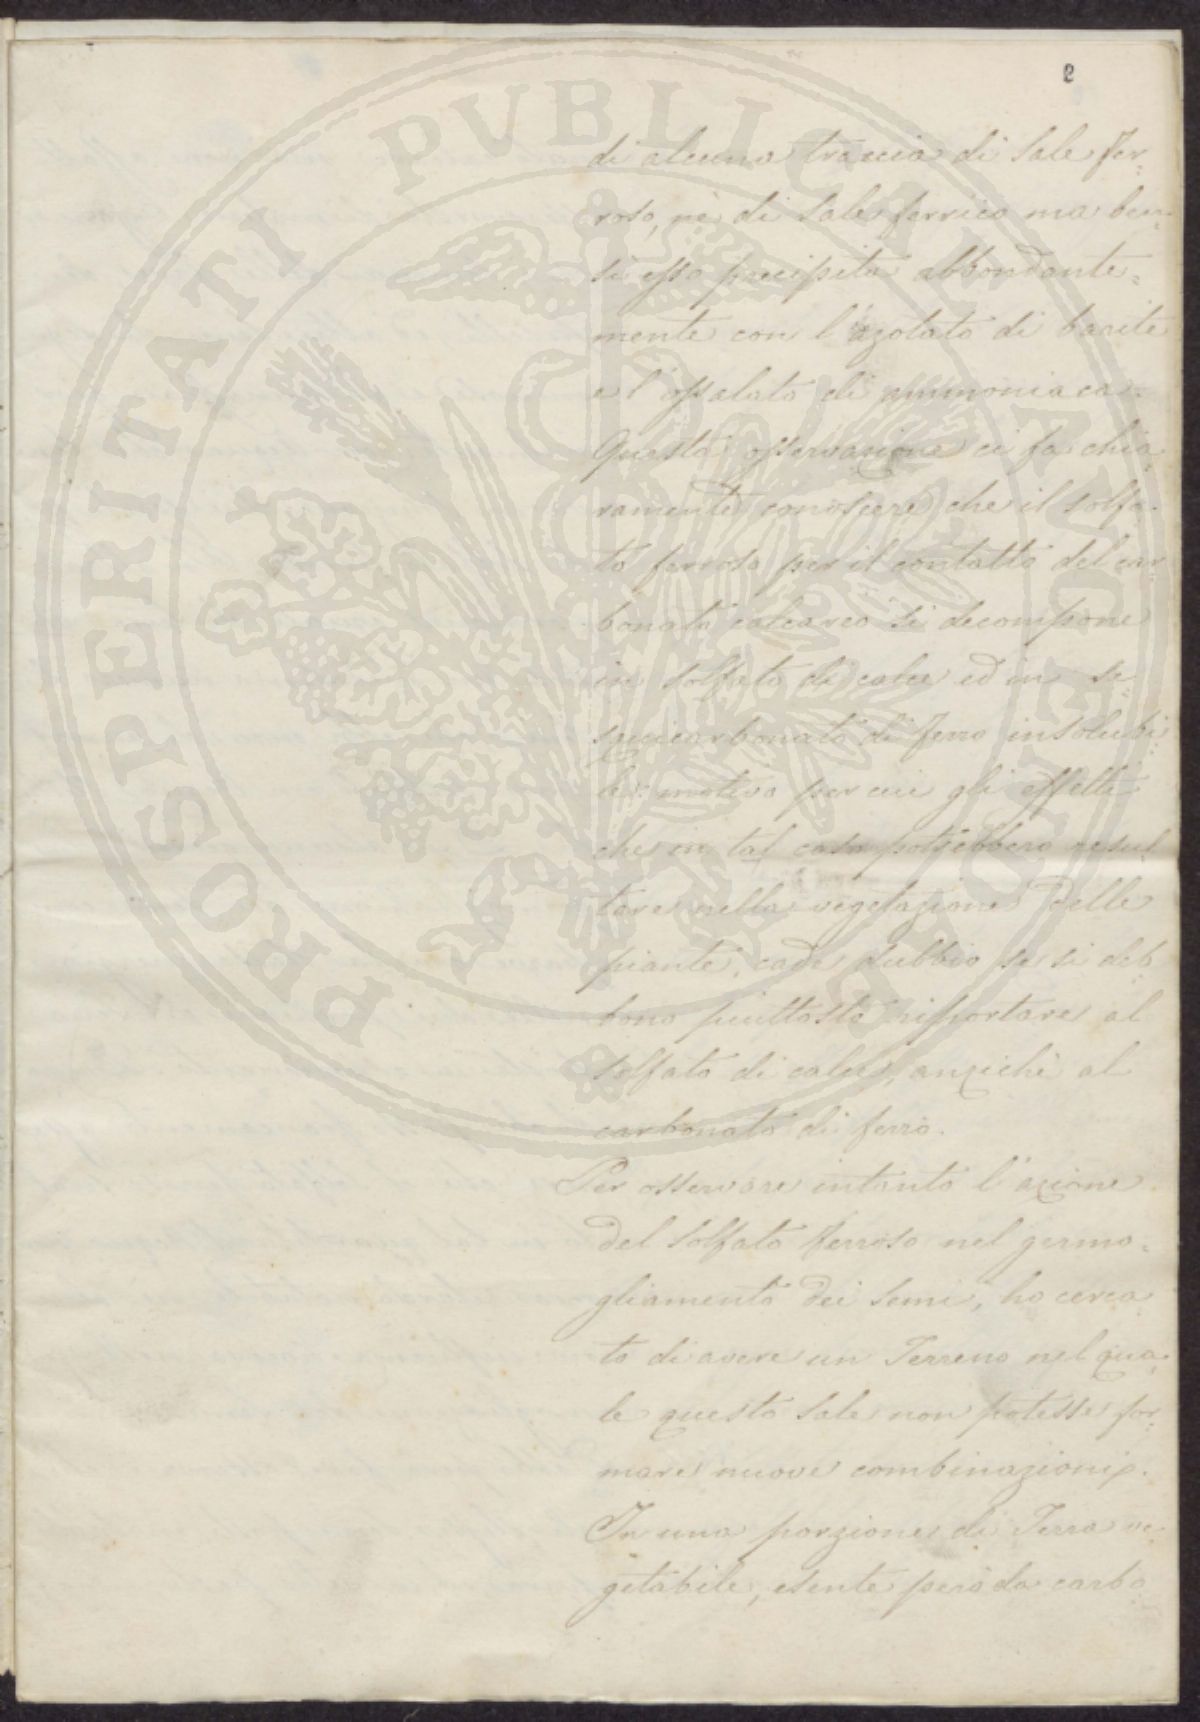 2
PROSPERITATI PUBLICAE AUGENDAE
di alcuna traccia di Sale Fer=
roso, nè di Sale ferrico ma ben=
sì esso precipita abbondante=
mente con l'azotato di barite
e l'ossalato di ammoniaca.
Questa osservazione ci fa chia
ramente conoscere che il solfa=
to ferroso per il contatto del car
bonato calcareo si decompone
in solfato di calce ed in se=
squicarbonato di ferro insolubi
le: motivo per cui gli effetti
che in tal caso potrebbero resul
tare nella vegetazione delle
piante, cade dubbio se si deb
bono piuttosto riportare al
solfato di calce, anzichè al
carbonato di ferro.
Per osservare intanto l'azione
del Solfato ferroso nel germo=
gliamento dei semi, ho cerca
to di avere un Terreno nel qua=
le questo Sale non potesse for=
mare nuove combinazioni.
In una porzione di Terra ve=
getabile, esente però da carbo